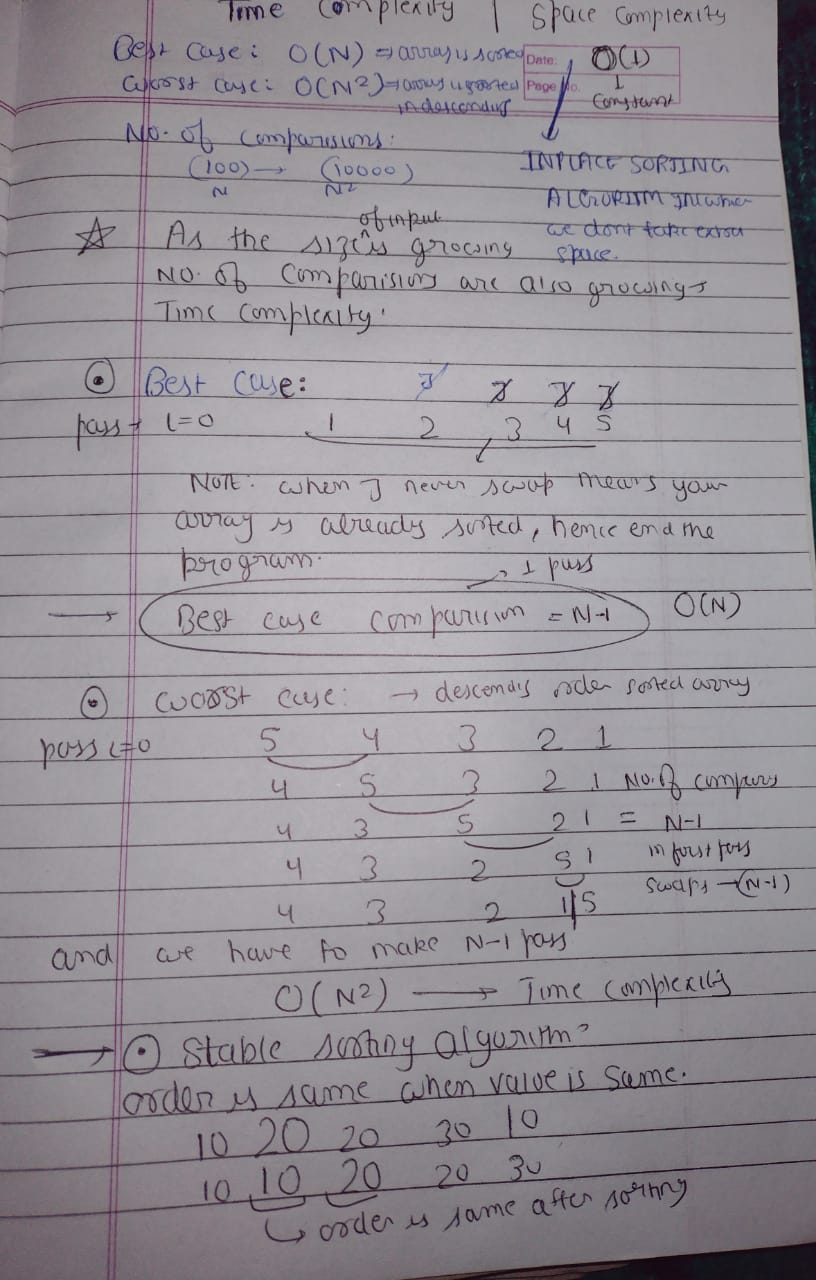 Time Complexity | Space Complexity
Best Case: O(N) → array is sorted
Date: O(1)
Worst case: O(N2) → array is sorted
Page No. 1
in descending
Constant
No. of comparisions:
(100) → (10000)
N N2
INPLACE SORTING
ALGORITM in which
we dont take extra
space.
☆ As the size of input is growing
No. of comparisions are also growing →
Time complexity.
⊙ Best Case:
pass → i=0 1 2 3 4 5
Note: when I never swap means your
array is already sorted, hence end the
program.
→ 1 pass
→ Best case comparision = N-1 O(N)
⊙ worst case: → descending order sorted array
pass i=0 5 4 3 2 1
4 5 3 2 1 No. of compars
4 3 5 2 1 = N-1
4 3 2 5 1 in first pass
swaps → (N-1)
4 3 2 1 | 5
and we have to make N-1 pass
O(N2) → Time complexity
→ ⊙ Stable sorting algorithm?
order is same when value is same.
10 20 20 30 10
10 10 20 20 30
↳ order is same after sorting